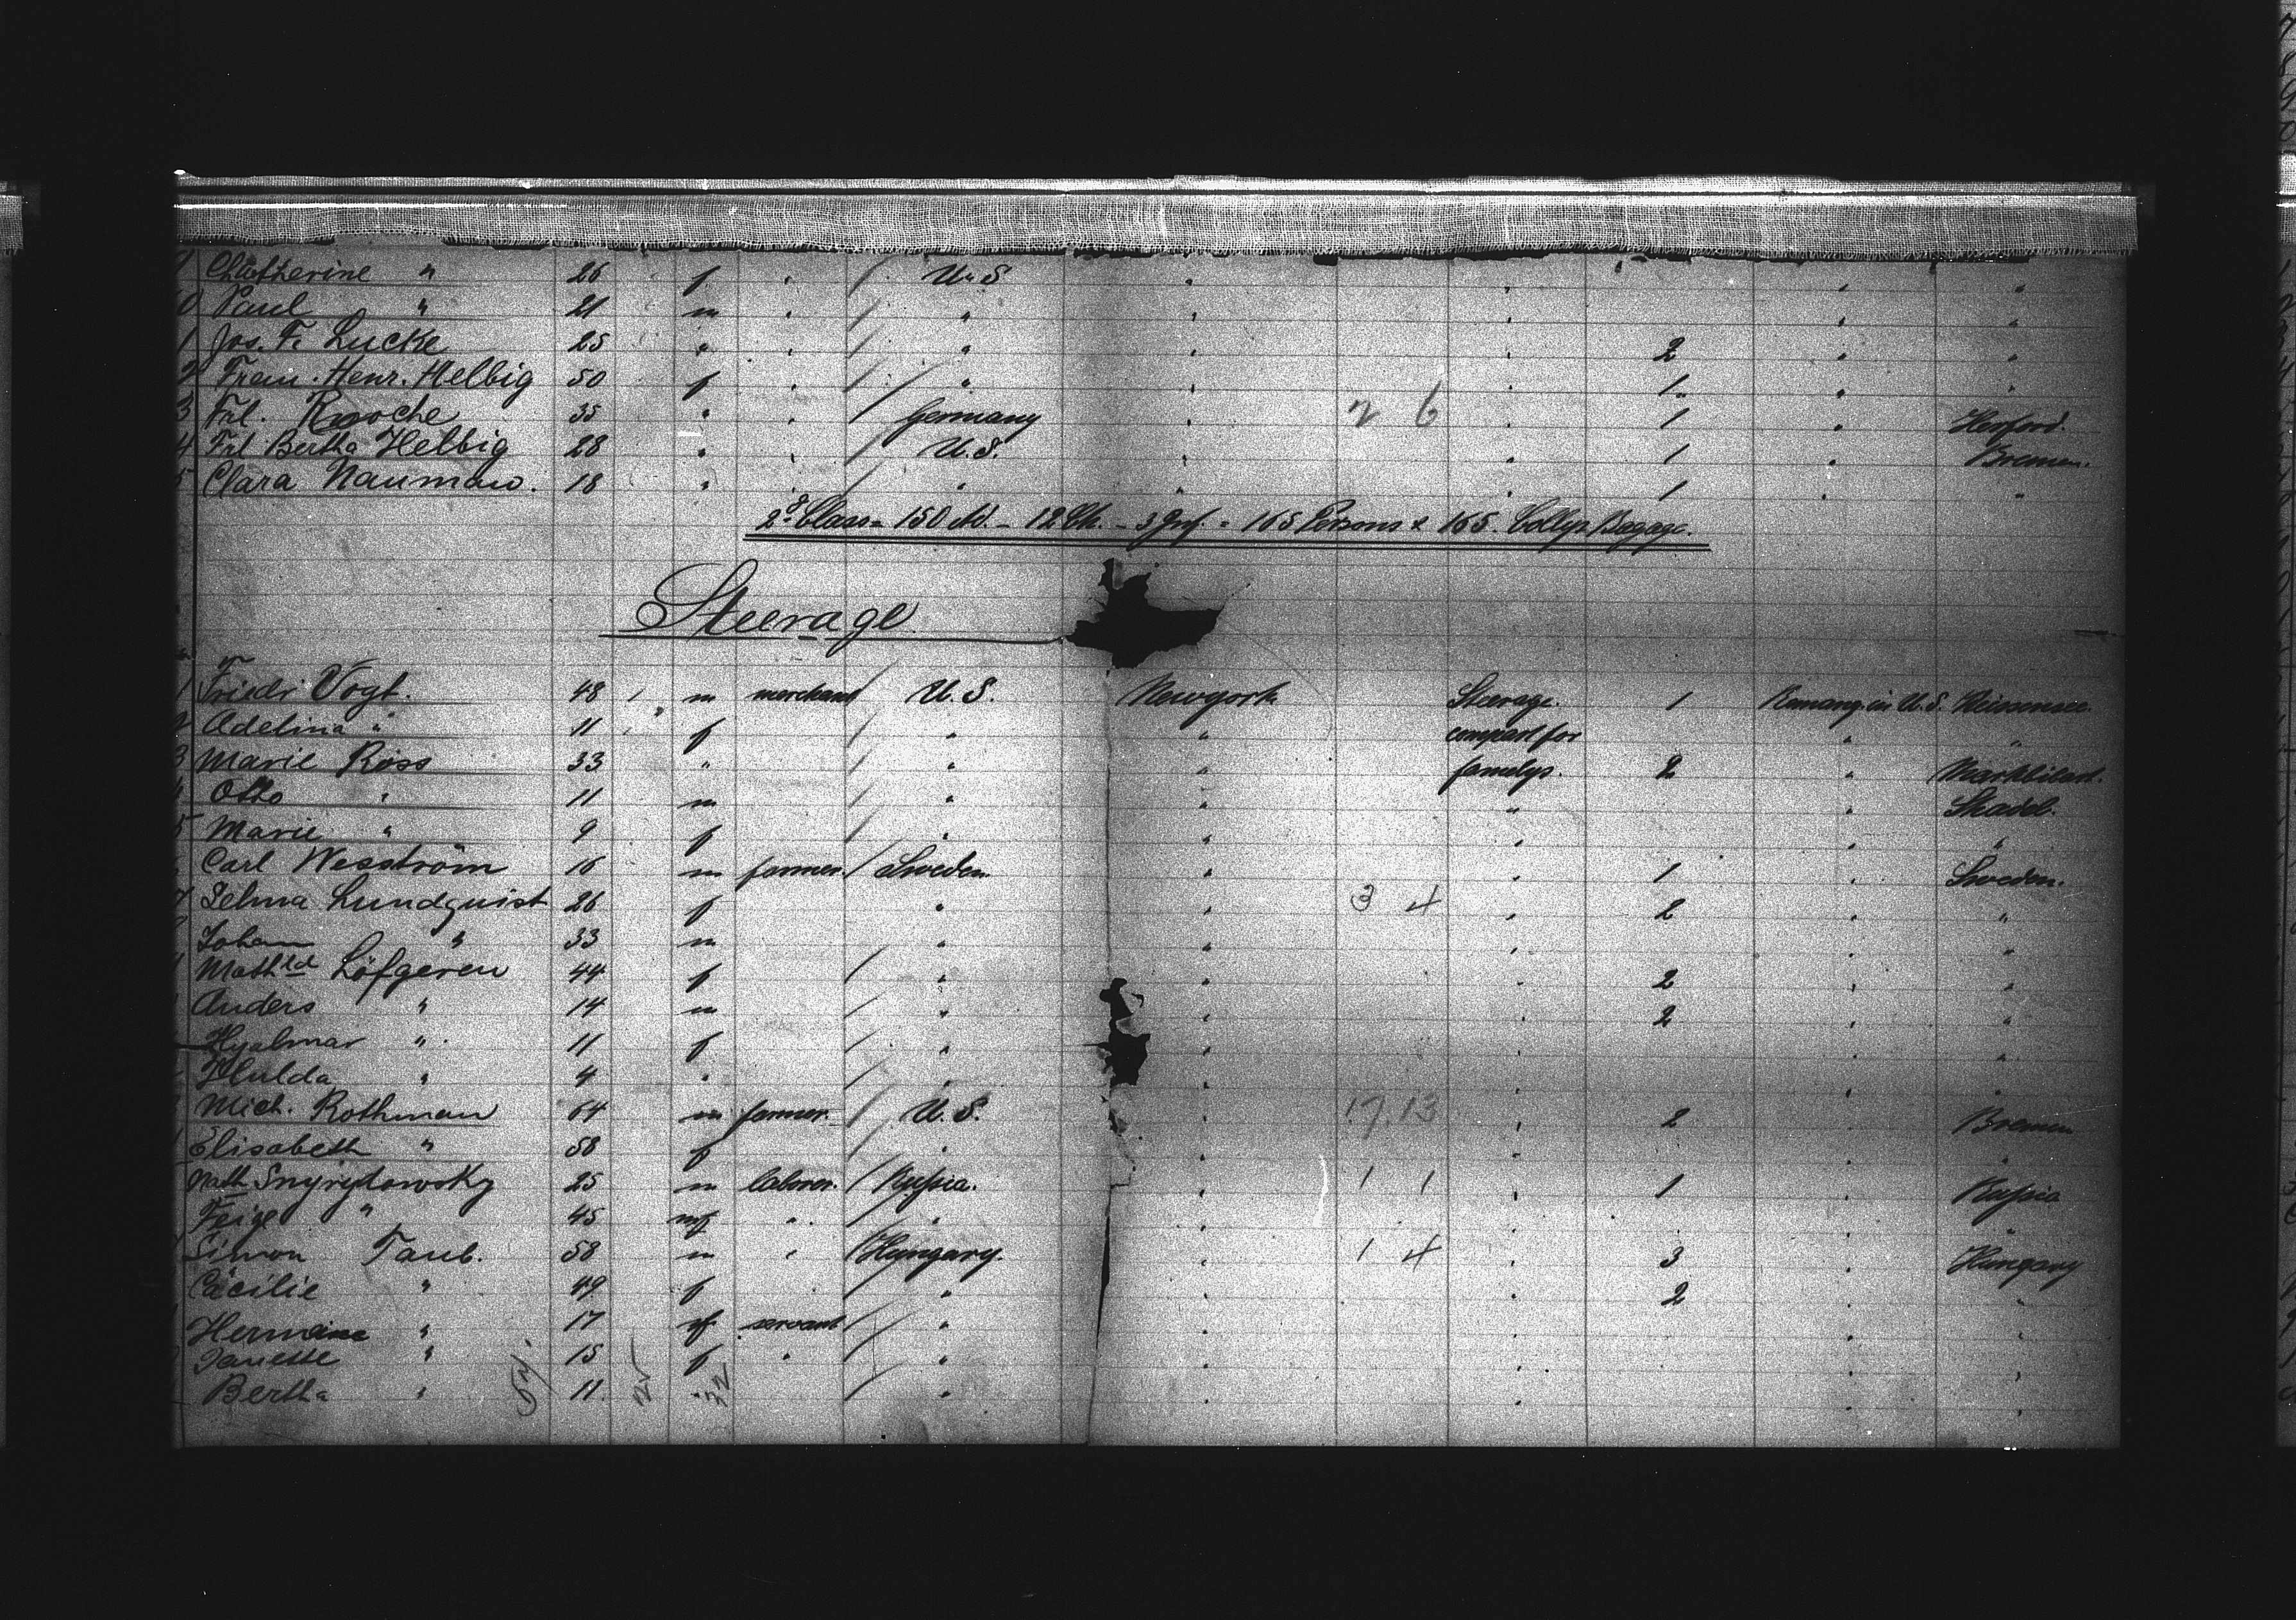 Chatherine " 26 f " / U.S. " " " "
Paul " 21 m " / " " " " "
1 Jos. F. Lucke 25 " " / " " " 2 " "
2 Frau Henr. Helbig 50 f " / " " " 1 " "
3 Frl. Roche 35 " " / Germany " 2 6 " 1 " Herford.
4 Frl Bertha Helbig 28 " " / U.S. " " 1 " Bremen.
5 Clara Nauman. 18 " " / " " " 1 " "
2d Class = 150 Ad. - 12 Ch. - 3 Inf. = 165 Persons & 165 Collys Bagage.
Steerage
1 Friedr Vogt. 48 m merchant / U.S. Newyork Steerage. 1 Remang. in U.S. Weissensee
2 Adelina " 11 f / " " compart for " "
3 Marie Ross 33 " / " " familys. 2 " Marktbibart.
Otto " 11 m / " " " " Stadel.
5 Marie " 9 f / " " " " "
Carl Wesström 16 m farmer. / Sweden " " 1 " Sweden.
7 Selma Lundquist 26 f " " 3 4 " 2 " "
Johan " 33 m " " " " "
Mathld Löfgeren 44 f / " " " 2 " "
Anders " 14 m / " " " 2 " "
Hjalmar " 11 f / " " " " "
Hulda " 4 " / " " " " "
Mich. Rothman 64 m farmer. / U.S. " 17 13 " 2 " Bremen
Elisabeth " 58 f / " " " " "
Nath Snyrydowsky 25 m laborer. / Russia. " 1 1 " 1 " Russia
Feige " 45 mf " / " " " " "
Simon Taub. 58 m " / Hungary. " 1 4 " 3 " Hungary
Cäcilie " 49 f / " " " 2 " "
Hermine " 17 f servant / " " " " "
Janette " 15 f " / " " " " "
Bertha " 11 " / " " " " "